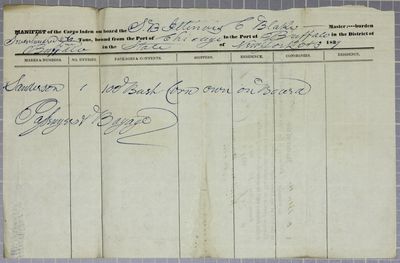 MANIFEST of the Cargo laden on board the S B Illinois C Blake Master,----burden
Tons, bound from the Port of Chicago to the Port of Buffalo in the District of
Buffalo in the State of New York 183
MARKS & NUMBERS. NO. ENTRIES. PACKAGES & CONTENTS. SHIPPERS. RESIDENCE. CONSIGNEES. RESIDENCE.
Sanderson 1 100 Bush Corn own on Board
Passengers & Bagage